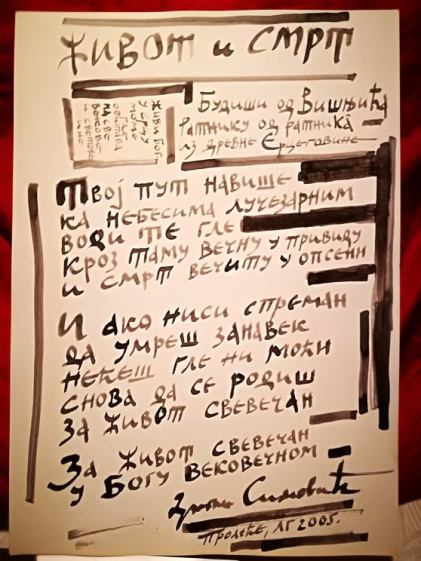 Живот и смрт
Живи Бог
у срцу
моме
где
на све
вековe
и светове
Будиши од Вишњића
Ратнику од ратника
из древне Ерцеговине
Твој пут навише
ка небесима лучезарним
води те гле
кроз таму вечну у привиду
и смрт вечиту у опсени
И ако ниси спреман
да умреш занавек
нећеш гле ни моћи
снова да се родиш
за живот свевечан
За живот свевечан
у Богу вековечном
Симовић
Пролеће, ЛГ 2005.